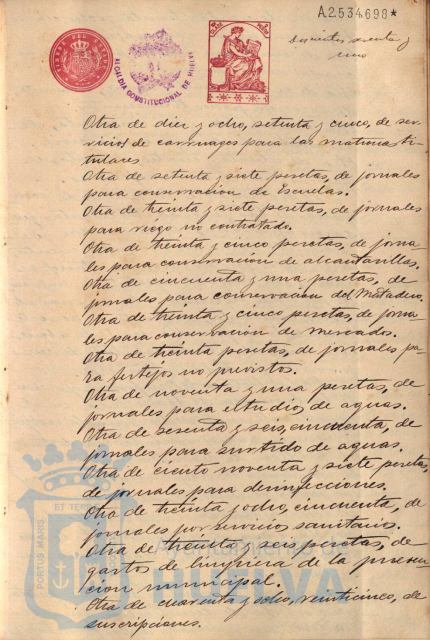 A2.534.698*
ALCALDIA CONSTITUCIONAL DE HUELVA
Otra de diez y ocho, setenta y cinco, de ser-
vicios de carruages para las matronas ti-
tulares.
Otra de setenta y siete pesetas, de jornales
para conservacion de Escuelas.
Otra de treinta y siete pesetas, de jornales
para riego no contratado.
Otra de treinta y cinco pesetas, de jorna-
les para conservacion de alcantarillas.
Otra de cincuenta y una pesetas, de
jornales para conservacion del Matadero.
Otra de treinta y cinco pesetas, de jorna-
les para conservacion de mercados.
Otra de treinta pesetas, de jornales pa-
ra festejos no previstos.
Otra de noventa y una pesetas, de
jornales para estudios de aguas.
Otra de sesenta y seis, cincuenta, de
jornales para surtido de aguas.
Otra de ciento noventa y siete pesetas,
de jornales para desinfecciones.
Otra de treinta y ocho, cincuenta, de
jornales por servicios sanitarios.
Otra de treinta y seis pesetas, de
gastos de limpieza de la preven-
cion municipal.
Otra de cuarenta y ocho, veinticinco, de
suscripciones.
PORTUS MARIS ET TERRAE
Ayuntamiento de
HUELVA